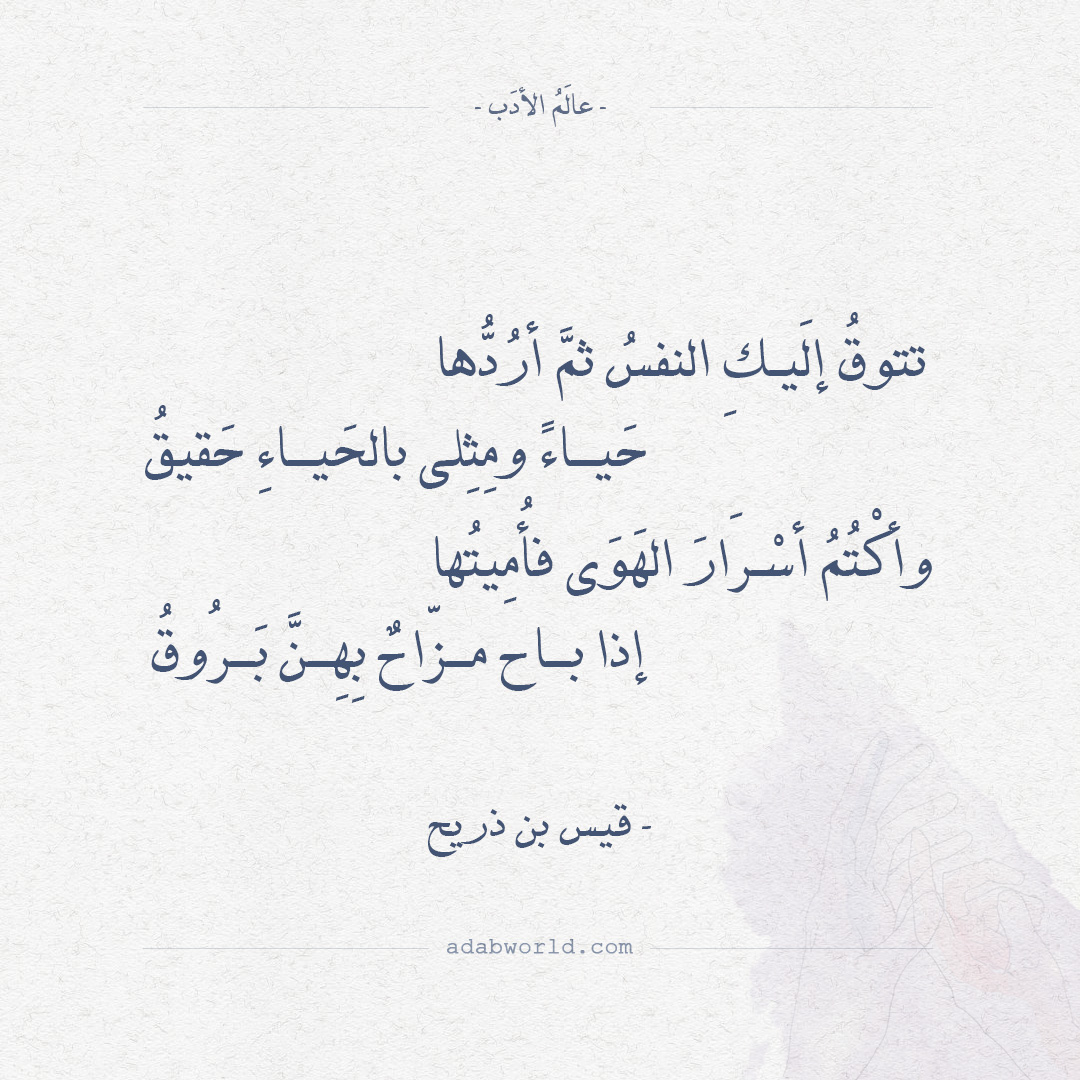 - عالَمُ الأدَب -
تتوقُ إلَيـكِ النفسُ ثمَّ أرُدُّها
حَيــاءً ومِثِلى بالحَيــاءِ حَقيقُ
وأكْتُمُ أسْـرَارَ الهَوَى فأُمِيتُها
إذا بــاح مــزّاحٌ بِهِــنَّ بَــرُوقُ
- قيس بن ذريح
adabworld.com